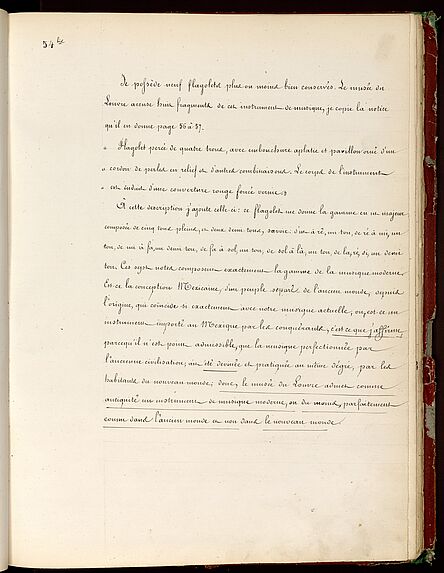 54 bis
Je possède neuf flageolets plus ou moins bien conservés. Le musée du
Louvre accuse huit fragments de cet instrument de musique, je copie la notice
qu'il en donne page 36 à 37.
" Flageolet percé de quatre trous, avec embouchure aplatie et pavillon orné d'un
" cordon de perles en relief et d'autres combinaisons. Le corps de l'instrument
" est enduit d'une couverture rouge foncé vernie "
A cette description j'ajoute celle-ci : ce flageolet me donne la gamme en ut majeur,
composée de cinq tons pleins, et deux demi tons, savoir : d'ut à ré, un ton, de ré à mi, un
ton, de mi à fa, un demi ton, de fa à sol, un ton, de sol à là, un ton, de la, ré, si, un demi
ton. Ces sept notes composent exactement la gamme de la musique moderne.
Est-ce la conception Mexicaine, d'un peuple séparé de l'ancien monde, depuis
l'origine, qui coïncide si exactement avec notre musique actuelle, ou, est-ce un
instrument importé au Mexique par les conquérants, c'est ce que j'affirme
parcequ'il n'est point admissible, que la musique perfectionnée par
l'ancienne civilisation, ait été devinée et pratiquée au même dégré, par les
habitants du nouveau monde ; donc, le musée du Louvre admet comme
antiquité un instrument de musique moderne, ou du moins, parfaitement
connu dans l'ancien monde et non dans le nouveau monde.